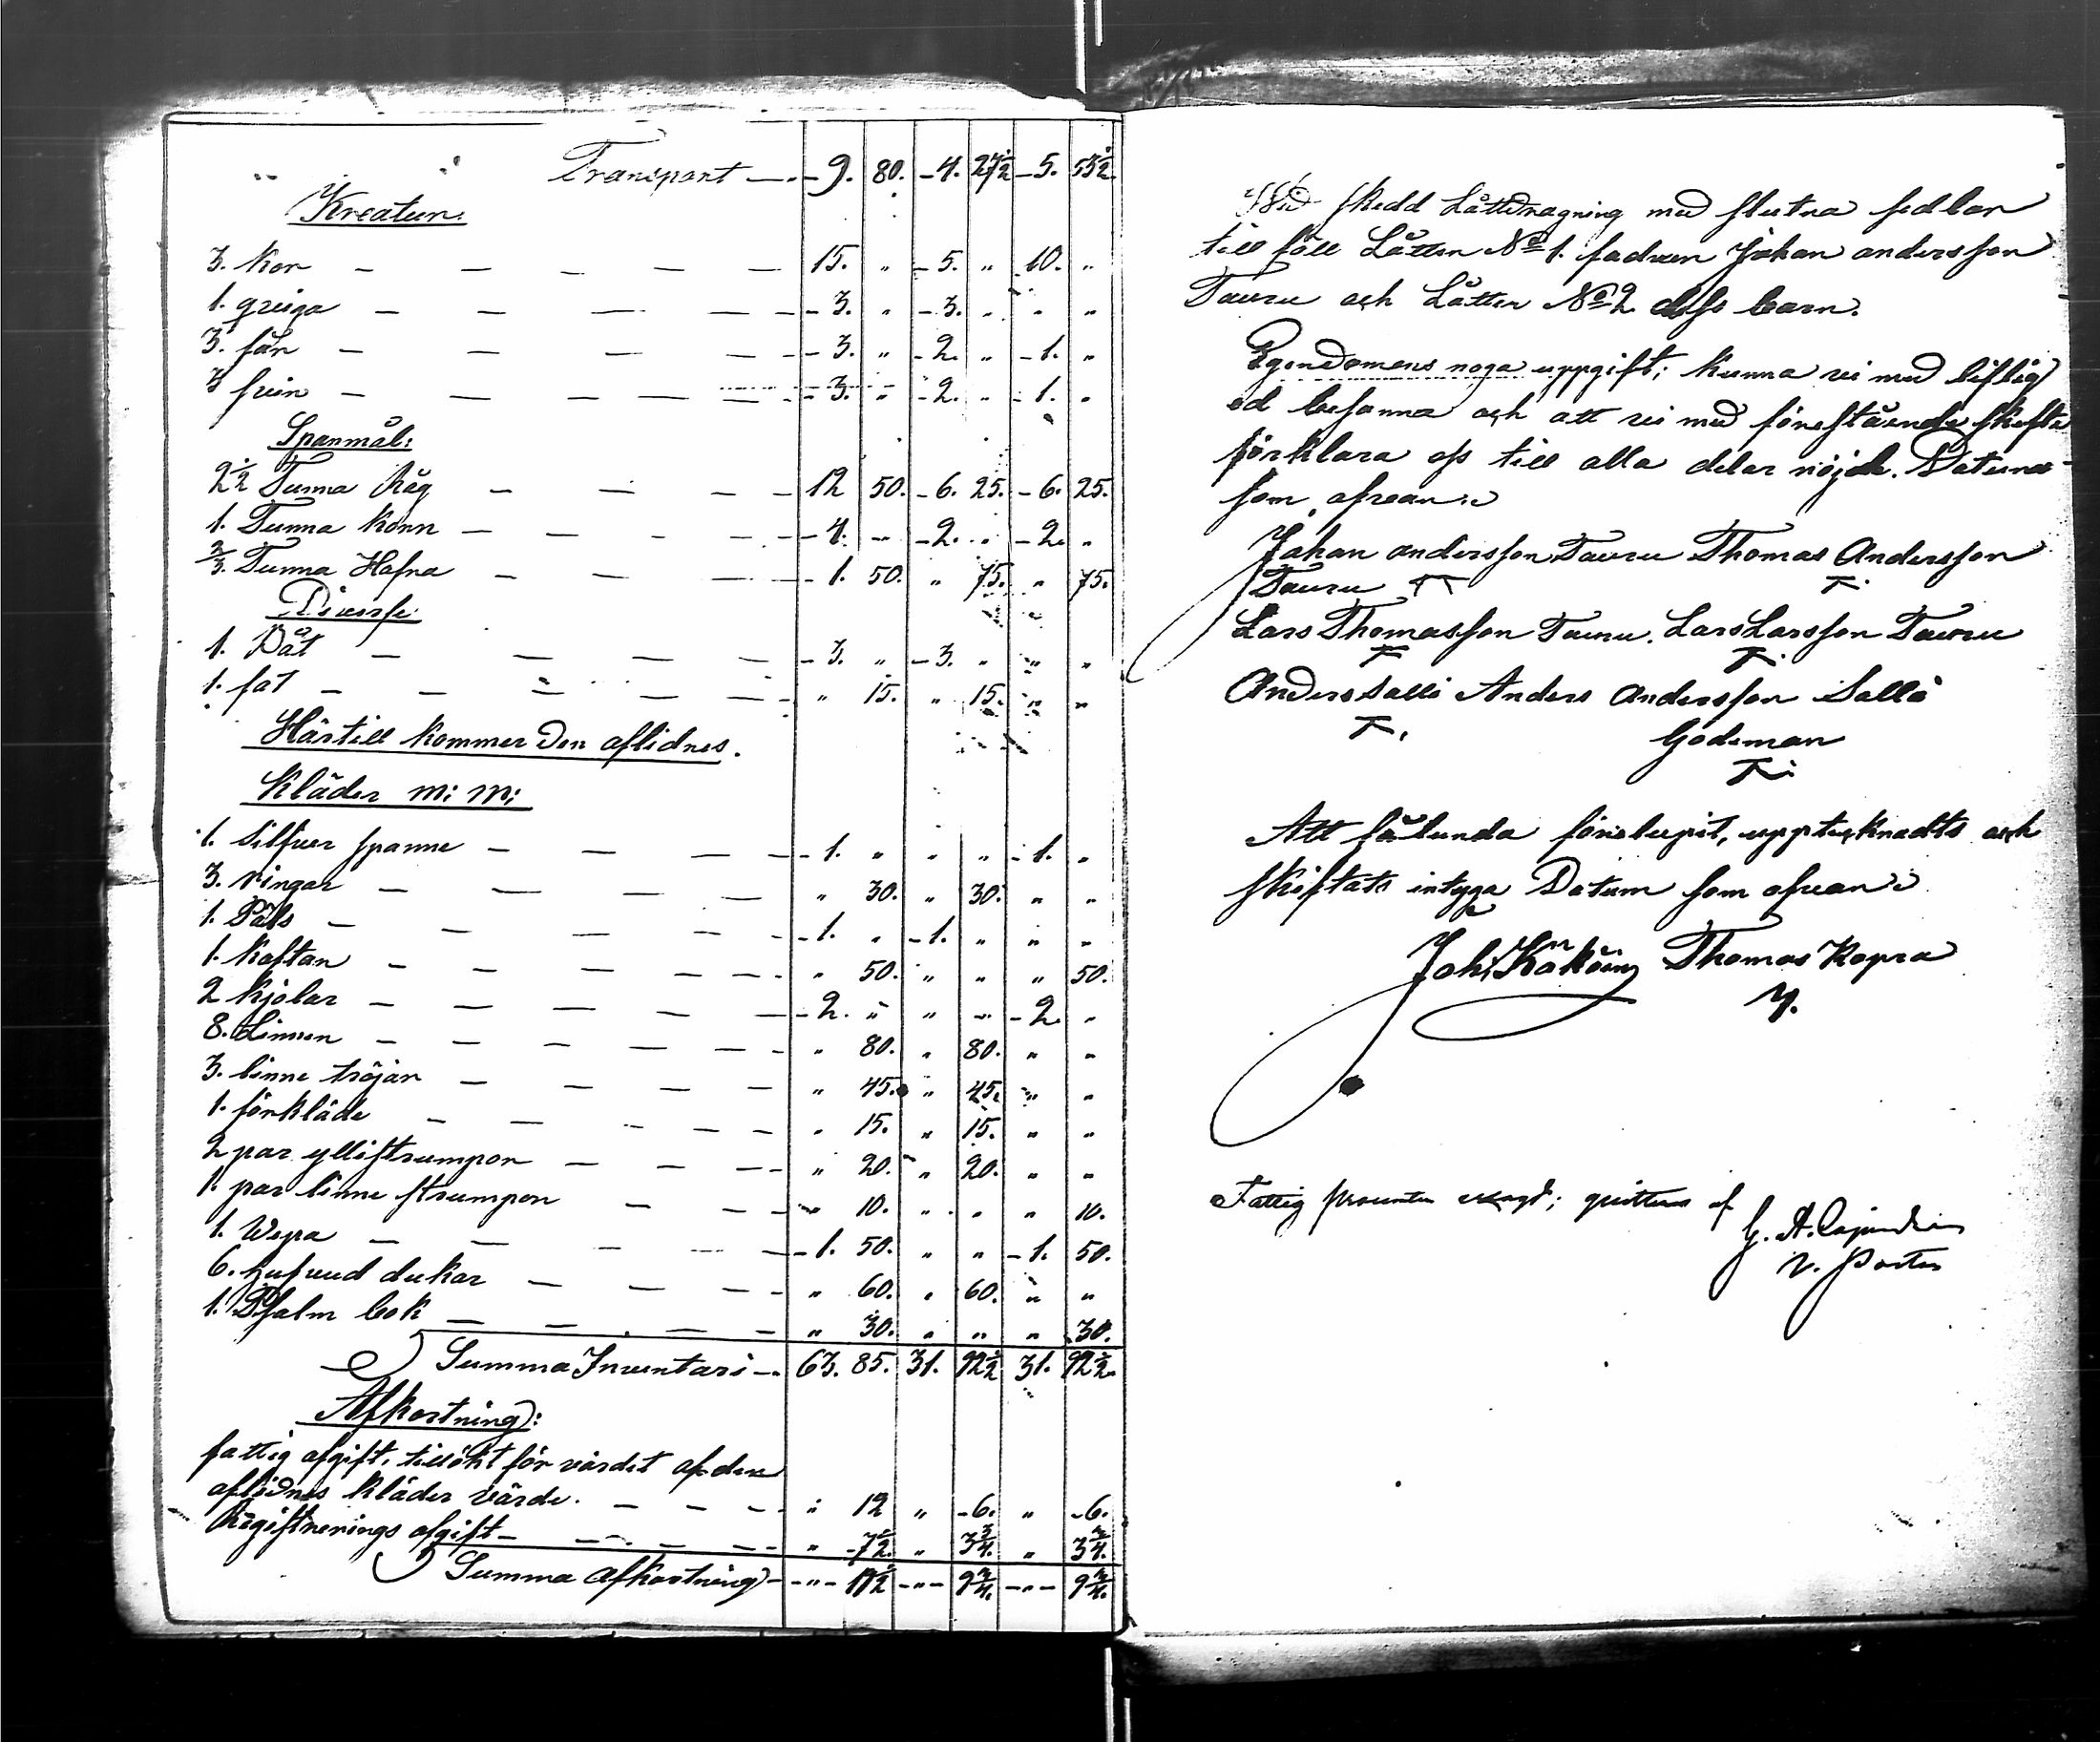 Transport — - 9. 80. - 4. 27½ - 5. 52½.
Kreatur.
3. Kor — — — — — 15. " - 5. " 10. "
1. qviga — — — — - 3. " - 3. " " "
3. får — — — — - 3. " - 2. " - 1. "
3 svin — — — — - 3. " - 2. " - 1. "
Spanmål:
2½ Tunna Råg — — — 12 50. - 6. 25. - 6. 25.
1. Tunna Korn — — — - 4. " - 2. " - 2. "
⅔. Tunna Hafra — — — - 1. 50. " 75. " 75.
Diverse
1. Båt — — — — - 3. " - 3. " " "
1. fat — — — — " 15. " 15. " "
Härtill kommer den aflidnes.
Kläder m: m:
1. Silfver spanne — — — - 1. " " " - 1. "
3. ringar — — — — " 30. " 30. " "
1. Päls — — — — - 1. " - 1. " " "
1. Kaftan — — — — " 50. " " " 50.
2 Kjolar — — — — - 2. " " " - 2. "
8. Linnen — — — — " 80. " 80. " "
3. linne tröjar — — — " 45. " 45. " "
1. förkläde — — — — " 15. " 15. " "
2 par yllestrumpor — — — " 20. " 20. " "
1. par linne strumpor — — " 10. " " " 10.
1. Wepa — — — — - 1. 50. " " - 1. 50.
6. hufvud dukar — — — " 60. " 60. " "
1. Psalm bok — — — — " 30. " " " 30.
Summa Inventari — 63. 85. 31. 92½ 31. 92½.
Afkortning:
fattig afgift, tillökt för värdet af den
aflidnes kläder värde. — — — " 12 " - 6. " - 6.
Registrerings afgift — — — " 7½. " 3¾. " 3¾.
Summa afkortning — - " - 19½ - " - 9¾. - " - 9¾.
Wid skedd Låttdragning med slutna sedlar
till föll Låtten No 1. fadren Johan andersson
Tauru och Låtten No 2 dess barn.
Egendomens noga uppgift; kunna vi med liflig
ed besanna och att vi med förestående skifte
förklara oss till alla delar nöjde. Datum
som ofvan.
Johan andersson Tauru Thomas Andersson
Tauru
Lars Thomasson Tauru. Lars Larsson Tauru
Anders Salli Anders Andersson Salli
Godeman
Att sålunda förelupit, upptecknadts och
skiftats intyga Datum som ofvan.
Joh: Thomas Kopra
Fattig procenten erlagd; qvitteras af
G. A.
v. Pastor